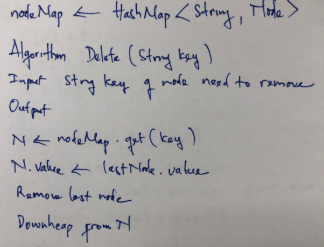 nodeMap ← HashMap < String, Node >
Algorithm Delete ( Strng key )
Input Strng key of node need to remove
Output
N ← nodeMap . get ( key )
N. value ← lastNode . value
Remove last node
Downheap from N